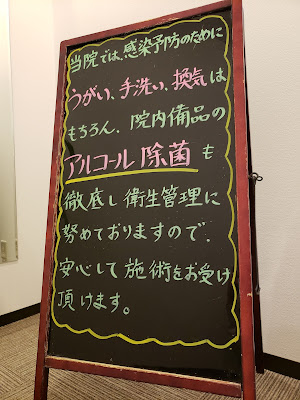 当院では、感染予防のために
うがい、手洗い、換気は
もちろん、院内備品の
アルコール除菌も
徹底し衛生管理に
努めておりますので、
安心して施術をお受け
頂けます。